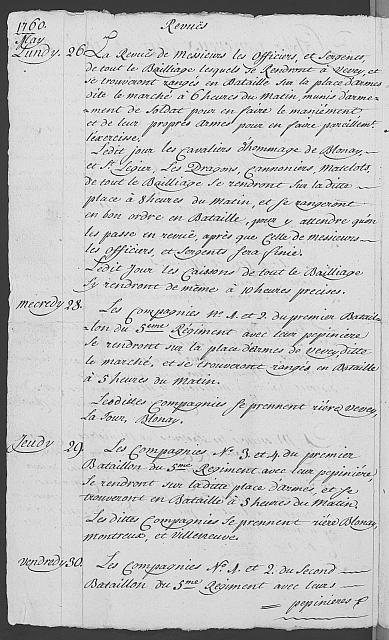 1760. Revuës
May
Lundy. 26. La Revuës de Messieurs les Officiers, et Sergents,
de tout le Bailliage lesquels se Rendront à Vevey, et
se trouveront rangés en Bataille sur la place d'armes
dite le marché à 6 heures du Matin, munis d'arme-
ment de Soldat pour en faire le maniement,
et de leur propres Armes pour en faire pareillemt.
l'exercise.
Ledit jour les Cavaliers d'hommage de Blonay,
et St. Legier, Les Dragons, Cannoniers, Matelots,
de tout le Bailliage se rendront sur laditte
place à 8 heures du Matin, et se rangeront
en bon ordre en Bataille, pour y attendre qu'on
les passe en revuë, après que Celle de messieurs
les Officiers, et Sergents sera finie.
Ledit Jour les Caissons de tout le Bailliage
s'y rendront de même à 10 heures precises.
mecredy 28. Les Compagnies No. 1. et 2. du premier Batail-
lon du 5eme Regiment avec leur pepiniere
se rendront sur la place d'armes de Vevey, ditte
le marché, et se trouveront rangés en Bataille
à 5 heures du Matin.
Lesdittes Compagnies se prennent riére Vevey,
La Tour, Blonay.
Jeudy 29. Les Compagnies No. 3. et 4. du premier
Bataillon du 5me Regiment avec leur pepiniere,
se rendront sur laditte place d'armes, et se
trouveront en Bataille à 5 heures du Matin.
Lesdittes Compagnies se prennent riére Blonay,
montreux, et Villeneuve.
vendredy 30. Les Compagnies No. 1. et 2. du Second
Bataillon du 5me Regiment avec leurs
pepinieres